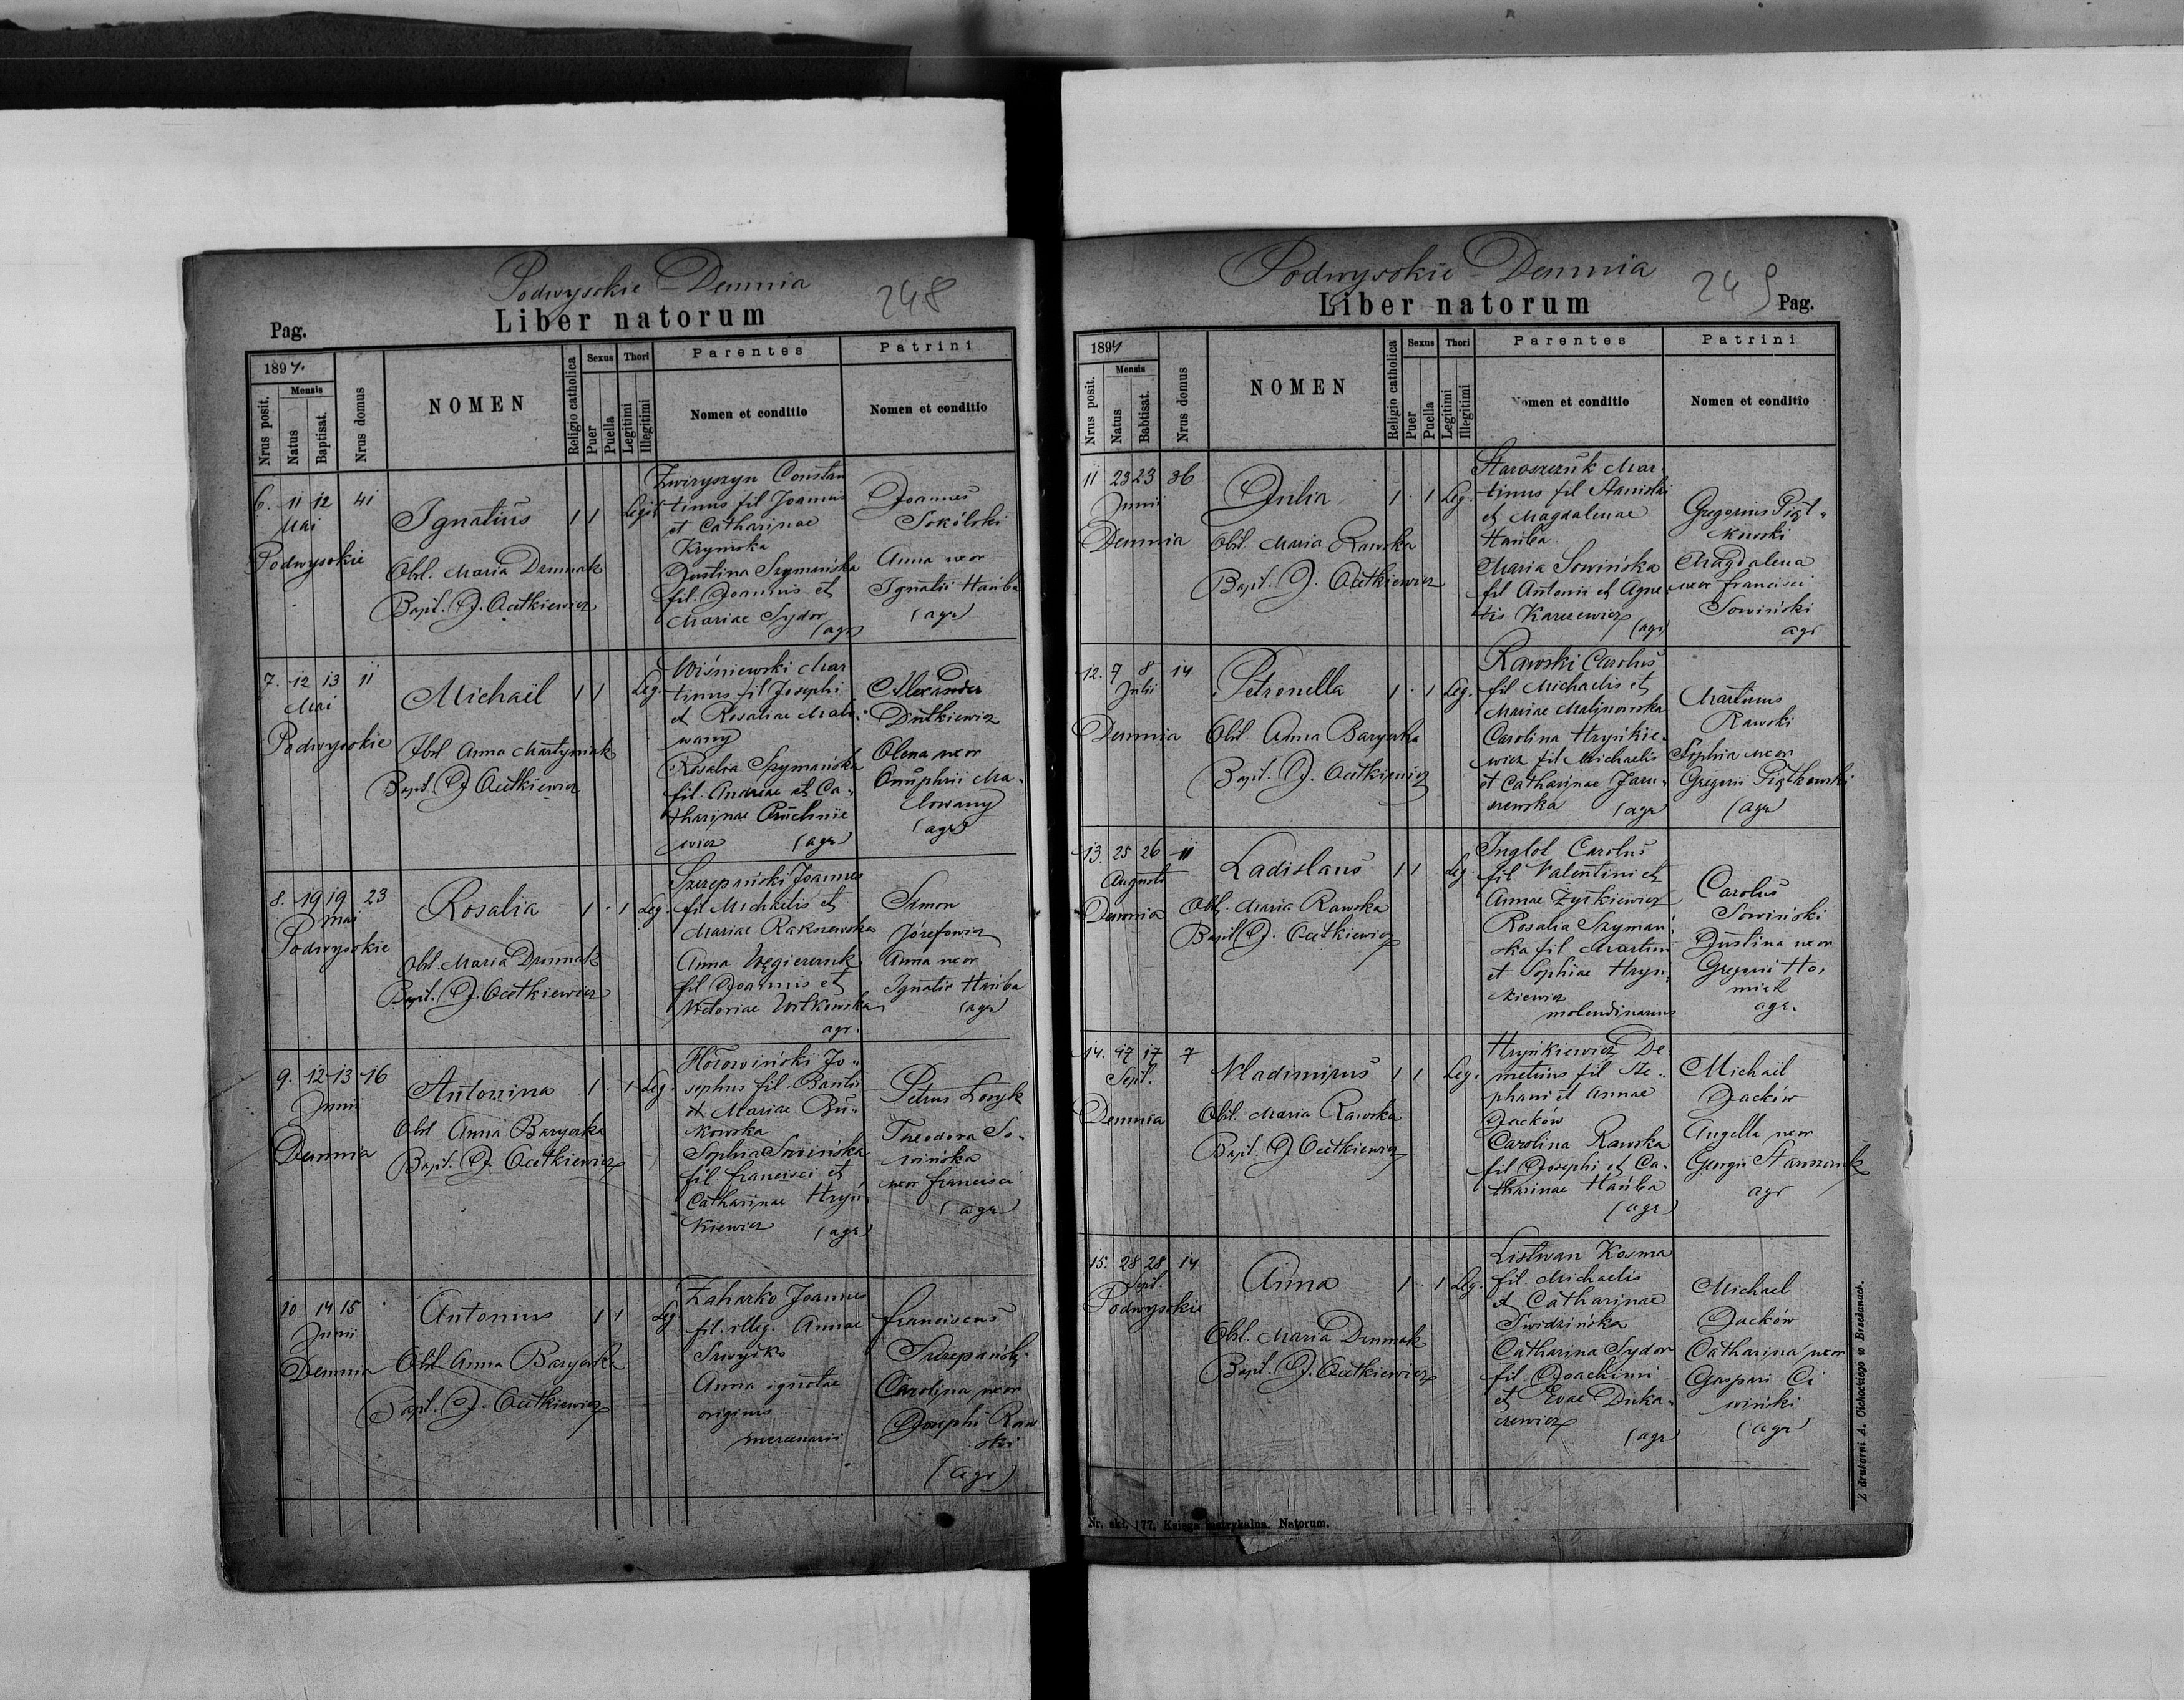 Podwysokie - Demnia
248
Pag.
Liber natorum
1897.
Nrus posit.
Mensis
Natus
Baptisat.
Nrus domus
NOMEN
Religio catholica
Sexus
Puer
Puella
Thori
Legitimi
Illegitimi
Parentes
Nomen et conditio
Patrini
Nomen et conditio
6. 11 12 41
Mai
Podwysokie
Ignatius
Obst. Maria
Bapt. J. Ocetkiewicz
1 1
Legit
Constan
tinus fil Joannis
et Catharinae
Krymska
Justina Szymańska
fil. Joannis et
Mariae Sydor
(agr)
Joannes
Sokólski
Anna uxor
Ignatii Hańba
(agr)
7. 12 13 11
Mai
Podwysokie
Michaël
Obst Anna Martyniak
Bapt. J. Ocetkiewicz
1 1
Leg.
Wiśniewski Mar
tinus fil Josephi
et Rosaliae Malo-
wany
Rosalia Szymańska
fil. Andreae et Ca-
tharinae Pruchnie
wicz (agr)
Alexander
Dutkiewicz
Olena uxor
Onuphrii Ma-
lowany
(agr)
8. 19 19 23
Mai
Podwysokie
Rosalia
Obst. Maria
Bapt. J. Ocetkiewicz
1 . 1 Leg.
Szczepański Joannes
fil Michaëlis et
Mariae Rakszewska
Anna Węgierczuk
fil Joannis et
Victoriae Witkowska
agr.
Simon
Józefowicz
Anna uxor
Ignatii Hańba
(agr)
9. 12 13 16
Junii
Demnia
Antonina
Obst Anna Barycka
Bapt. J. Ocetkiewicz
1 . 1 Leg.
Jo-
sephus fil.
et Mariae Bu-
kowska
Sophia Sowińska
fil Francisci et
Catharinae Hryń
kiewicz (agr)
Petrus
Theodora So-
wińska
uxor Francisci
(agr)
10 14 15 .
Junii
Demnia
Antonius
Obst Anna Barycka
Bapt. J. Ocetkiewicz
1 1
Leg
Zaharko Joannes
fil. illeg. Annae
Anna ignotae
originis
mercenarii
Franciscus
Szczepański
Carolina uxor
Josephi Raw
ski
(agr)
Podwysokie - Demnia
249
Liber natorum
Pag.
1897
Nrus posit.
Mensis
Natus
Babtisat.
Nrus domus
NOMEN
Religio catholica
Sexus
Puer
Puella
Thori
Legitimi
Illegitimi
Parentes
Nomen et conditio
Patrini
Nomen et conditio
11 23 23 36
Junii
Demnia
Julia
Obst. Maria Rawska
Bapt. J. Ocetkiewicz
1 . 1 Leg.
Staroszczuk Mar-
tinus fil Stanislai
et Magdalenae
Hańba
Maria Sowińska
fil Antonii et Agne
tis Karcewicz
(agr)
Gregorius Piąt-
kowski
Magdalena
uxor Francisci
Sowiński
agr
12. 7 8 14
Julii
Demnia
Petronella
Obst. Anna Barycka
Bapt. J. Ocetkiewicz
1 . 1 Leg.
Rawski Carolus
fil Michaelis et
Mariae Malinowska
Carolina Hryńkie-
wicz fil Michaelis
et Catharinae Jaru-
szewska (agr)
Martinus
Rawski
Sophia uxor
Gregorii Piątkowski
(agr)
13. 25 26 11
Augusti
Demnia
Ladislaus
Obst. Maria Rawska
Bapt J. Ocetkiewicz
1 1
Leg.
Inglot Carolus
fil Valentini et
Annae Żytkiewicz
Rosalia Szymań-
ska fil Martini
et Sophiae Hryn-
kiewicz
molendinarius
Carolus
Sowiński
Justina uxor
Gregorii
agr.
14. 17 17 7
Sept.
Demnia
Vladimirus
Obst. Maria Rawska
Bapt. J. Ocetkiewicz
1 1
Leg.
Hryńkiewicz De-
metrius fil Ste-
phani et Annae
Dacków
Carolina Rawska
fil Josephi et Ca-
tharinae Hańba
(agr)
Michaël
Dacków
Angella uxor
Georgii Staroszczuk
agr
15. 28 28 14
Sept.
Podwysokie
Anna
Obst. Maria
Bapt. J. Ocetkiewicz
1 . 1 Leg.
Listwan Kosma
fil. Michaelis
et Catharinae
Świdzińska
Catharina Sydor
fil. Joachimi
et Evae Duka-
czewicz
(agr)
Michael
Dacków
Catharina uxor
Gaspari Ci
wiński
(agr)
Nr. skł. 177. Księga metrykalna. Natorum.
Z drukarni A. Cichockiego w Brzeżanach.